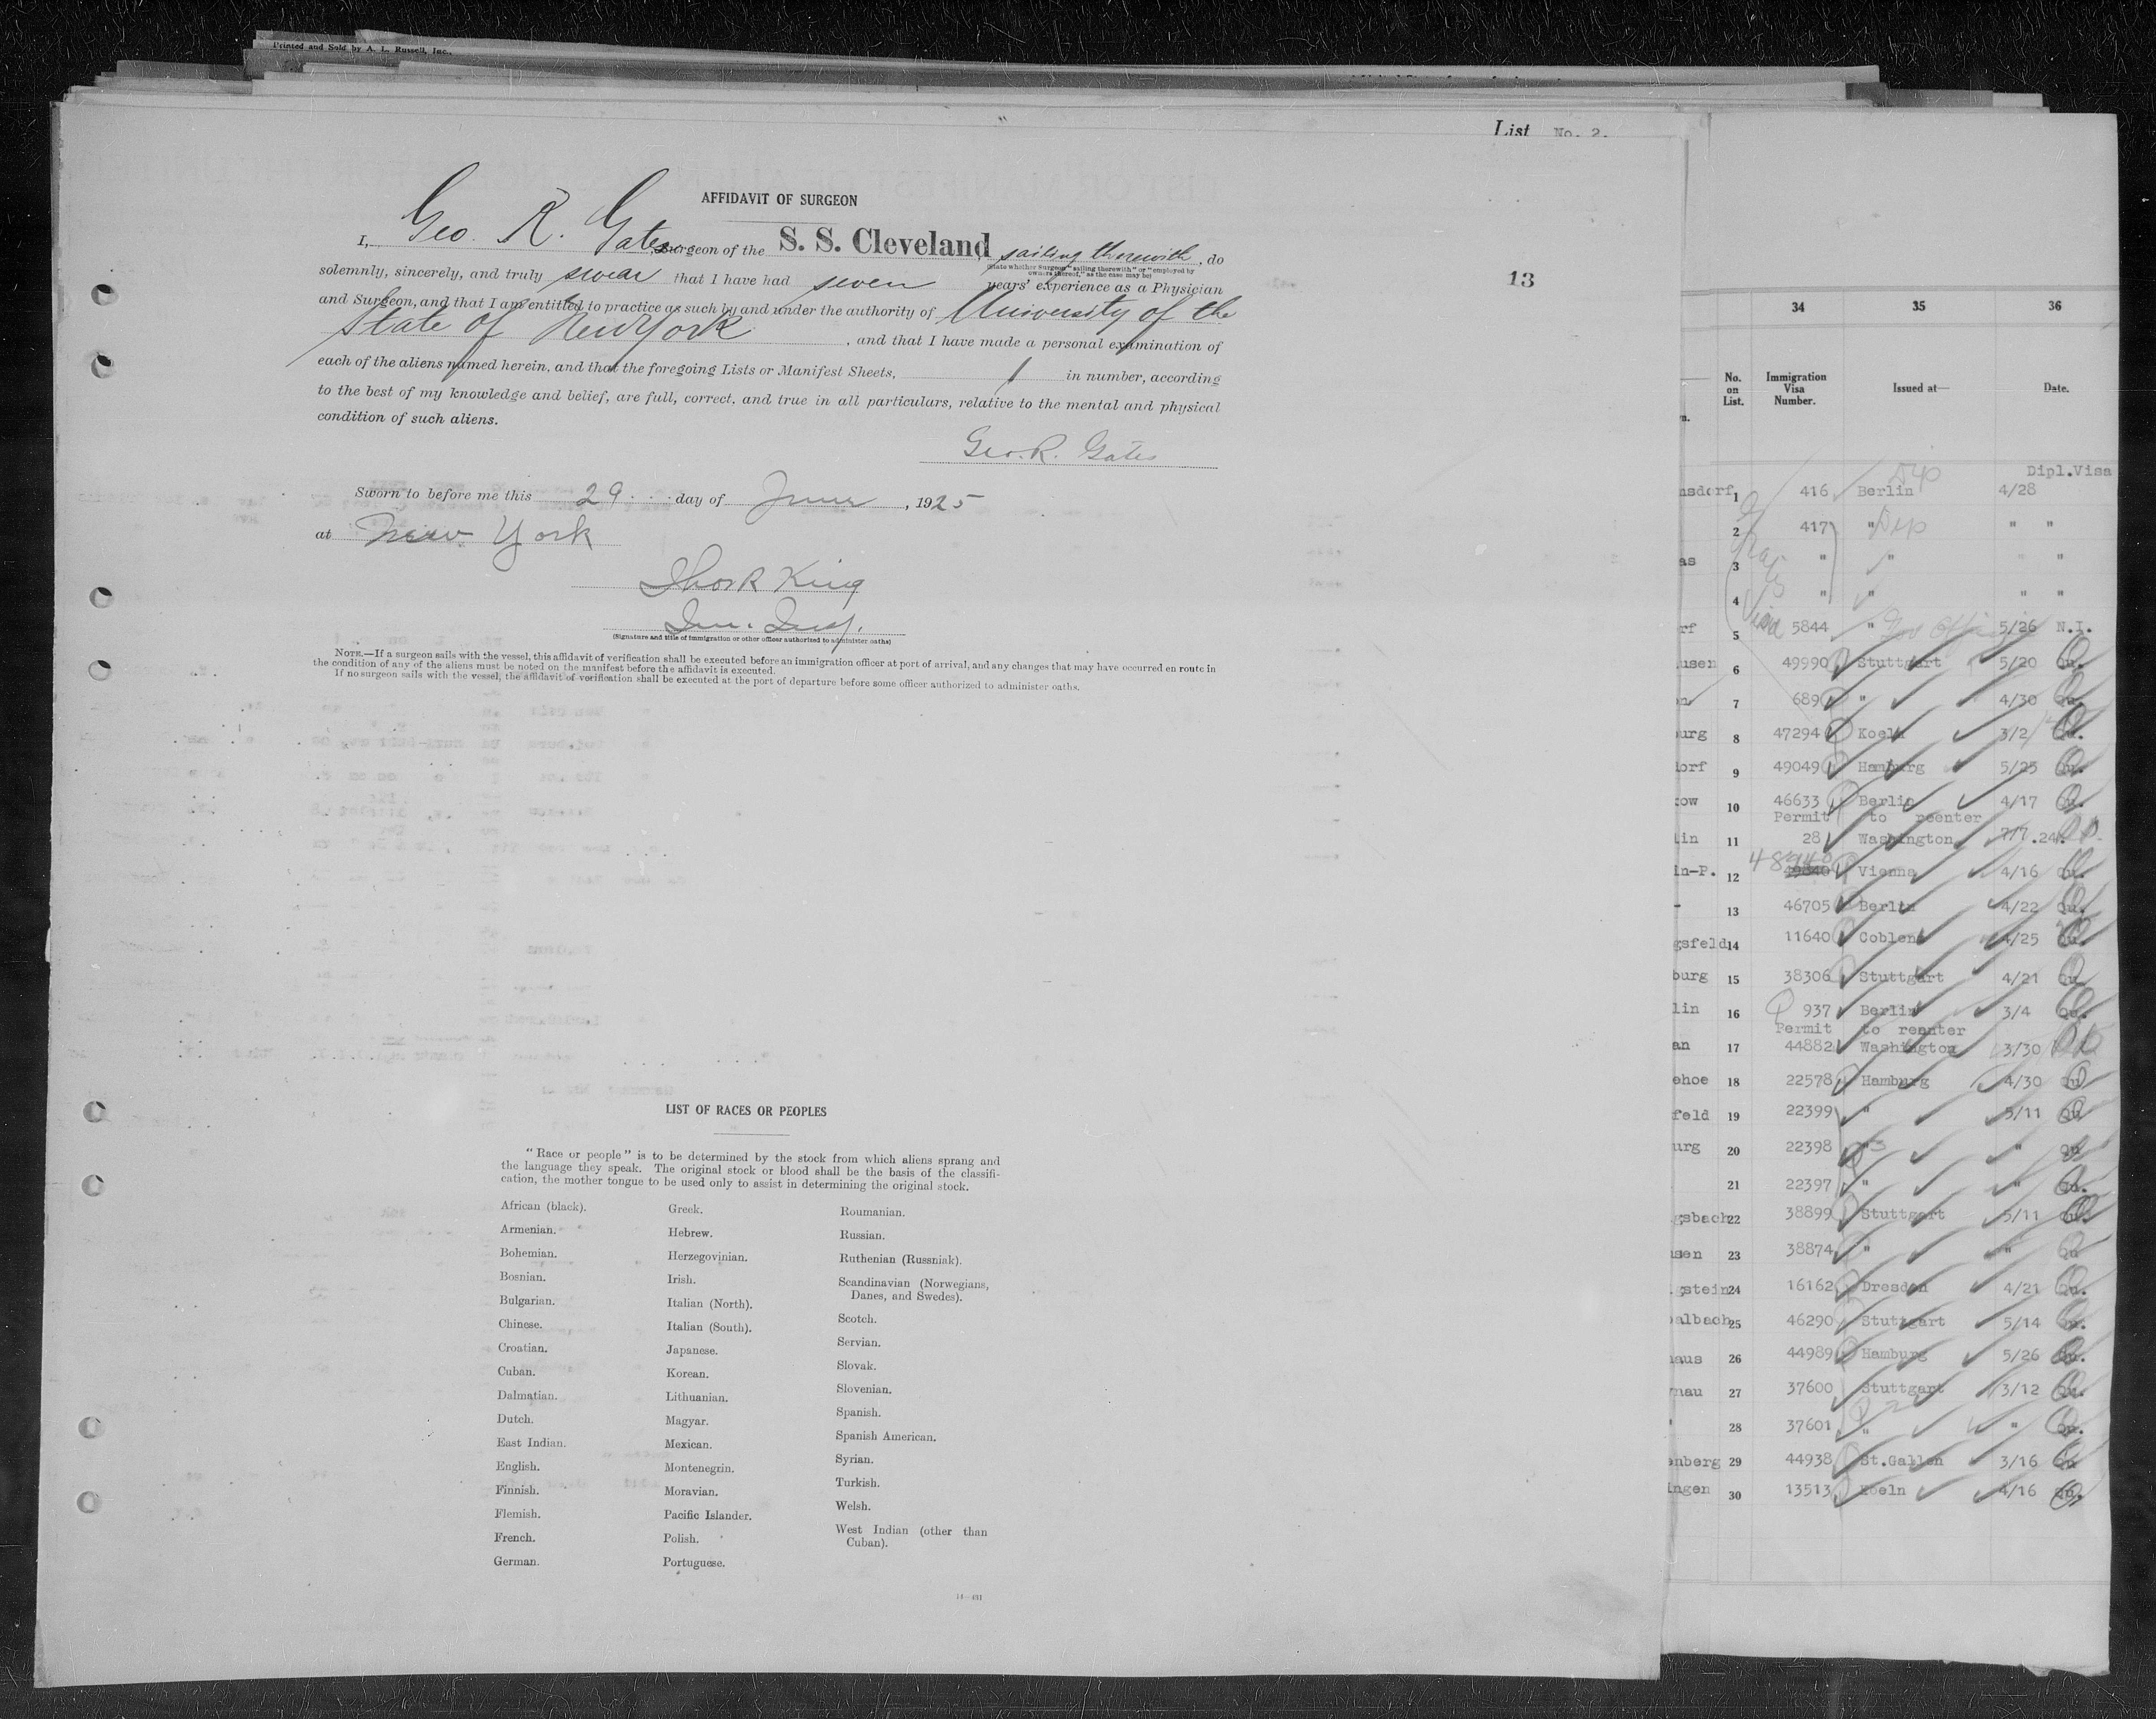 Printed and Sold by A. L. Russell, Inc.,
List No. 2.
AFFIDAVIT OF SURGEON
I, Geo. R. Gates Surgeon of the S. S. Cleveland, sailing therewith, do
(State whether Surgeon "sailing therewith" or "employed by
owners thereof," as the case may be)
solemnly, sincerely, and truly swear that I have had seven years' experience as a Physician
and Surgeon, and that I am entitled to practice as such by and under the authority of University of the
State of New York, and that I have made a personal examination of
each of the aliens named herein, and that the foregoing Lists or Manifest Sheets, 1 in number, according
to the best of my knowledge and belief, are full, correct, and true in all particulars, relative to the mental and physical
condition of such aliens.
13
Geo. R. Gates
Sworn to before me this 29 day of June, 1925
at New York
Thos R King
Imm. Insp.
(Signature and title of immigration or other officer authorized to administer oaths)
NOTE.—If a surgeon sails with the vessel, this affidavit of verification shall be executed before an immigration officer at port of arrival, and any changes that may have occurred en route in
the condition of any of the aliens must be noted on the manifest before the affidavit is executed.
If no surgeon sails with the vessel, the affidavit of verification shall be executed at the port of departure before some officer authorized to administer oaths.
LIST OF RACES OR PEOPLES
"Race or people" is to be determined by the stock from which aliens sprang and
the language they speak. The original stock or blood shall be the basis of the classifi-
cation, the mother tongue to be used only to assist in determining the original stock.
African (black).
Armenian.
Bohemian.
Bosnian.
Bulgarian.
Chinese.
Croatian.
Cuban.
Dalmatian.
Dutch.
East Indian.
English.
Finnish.
Flemish.
French.
German.
Greek.
Hebrew.
Herzegovinian.
Irish.
Italian (North).
Italian (South).
Japanese.
Korean.
Lithuanian.
Magyar.
Mexican.
Montenegrin.
Moravian.
Pacific Islander.
Polish.
Portuguese.
Roumanian.
Russian.
Ruthenian (Russniak).
Scandinavian (Norwegians,
Danes, and Swedes).
Scotch.
Servian.
Slovak.
Slovenian.
Spanish.
Spanish American.
Syrian.
Turkish.
Welsh.
West Indian (other than
Cuban).
34 35 36
No. on List. Immigration Visa Number. Issued at— Date.
Dipl.Visa
nsdorf 1 416 Berlin Dip 4/28
2 417 " Dip " "
as 3 " " " "
4 " " " "
rf 5 5844 " 5/26 N.I.
usen 6 49990 Stuttgart 5/20 Qu.
n 7 689 " 4/30 Qu.
urg 8 47294 Koeln 3/2 Qu.
orf 9 49049 Hamburg 5/25 Qu.
kow 10 46633 Berlin 4/17 Qu.
Permit to reenter
lin 11 28 Washington 7/7.24.
in-P. 12 Vienna 4/16 Qu.
- 13 46705 Berlin 4/22 Qu.
gsfeld 14 11640 Coblenz 4/25 Qu.
burg 15 38306 Stuttgart 4/21 Qu
lin 16 937 Berlin 3/4 Qu.
Permit to reenter
an 17 44882 Washington 3/30
ehoe 18 22578 Hamburg 4/30 Qu
feld 19 22399 " 5/11 Qu
urg 20 22398 " " Qu
21 22397 " " Qu.
gsbach 22 38899 Stuttgart 5/11 Qu.
sen 23 38874 " " Qu
gstein 24 16162 Dresden 4/21 Qu.
albach 25 46290 Stuttgart 5/14 Qu.
haus 26 44989 Hamburg 5/26 Qu.
nau 27 37600 Stuttgart 3/12 Qu.
" 28 37601 " " Qu.
enberg 29 44938 St.Gallen 3/16 Qu
ingen 30 13513 Koeln 4/16 Qu.